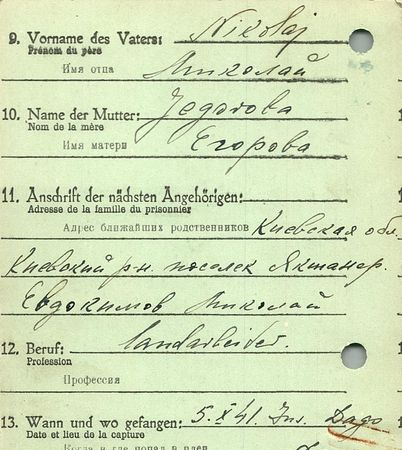 Nikolaj
9. Vorname des Vaters:
Prénom du père
Имя отца Николай
Jegorowa
10. Name der Mutter:
Nom de la mère
Имя матери Егорова
11. Anschrift der nächsten Angehörigen:
Adresse de la famille du prisonnier
Адрес ближайших родственников Киевская обл.
Киевский р-н. поселек
Евдокимов Николай
12. Beruf: Landarbeiter.
Profession
Профессия
13. Wann und wo gefangen: 5.X.41. Ins. Dago
Date et lieu de la capture
Когда и где попал в плен